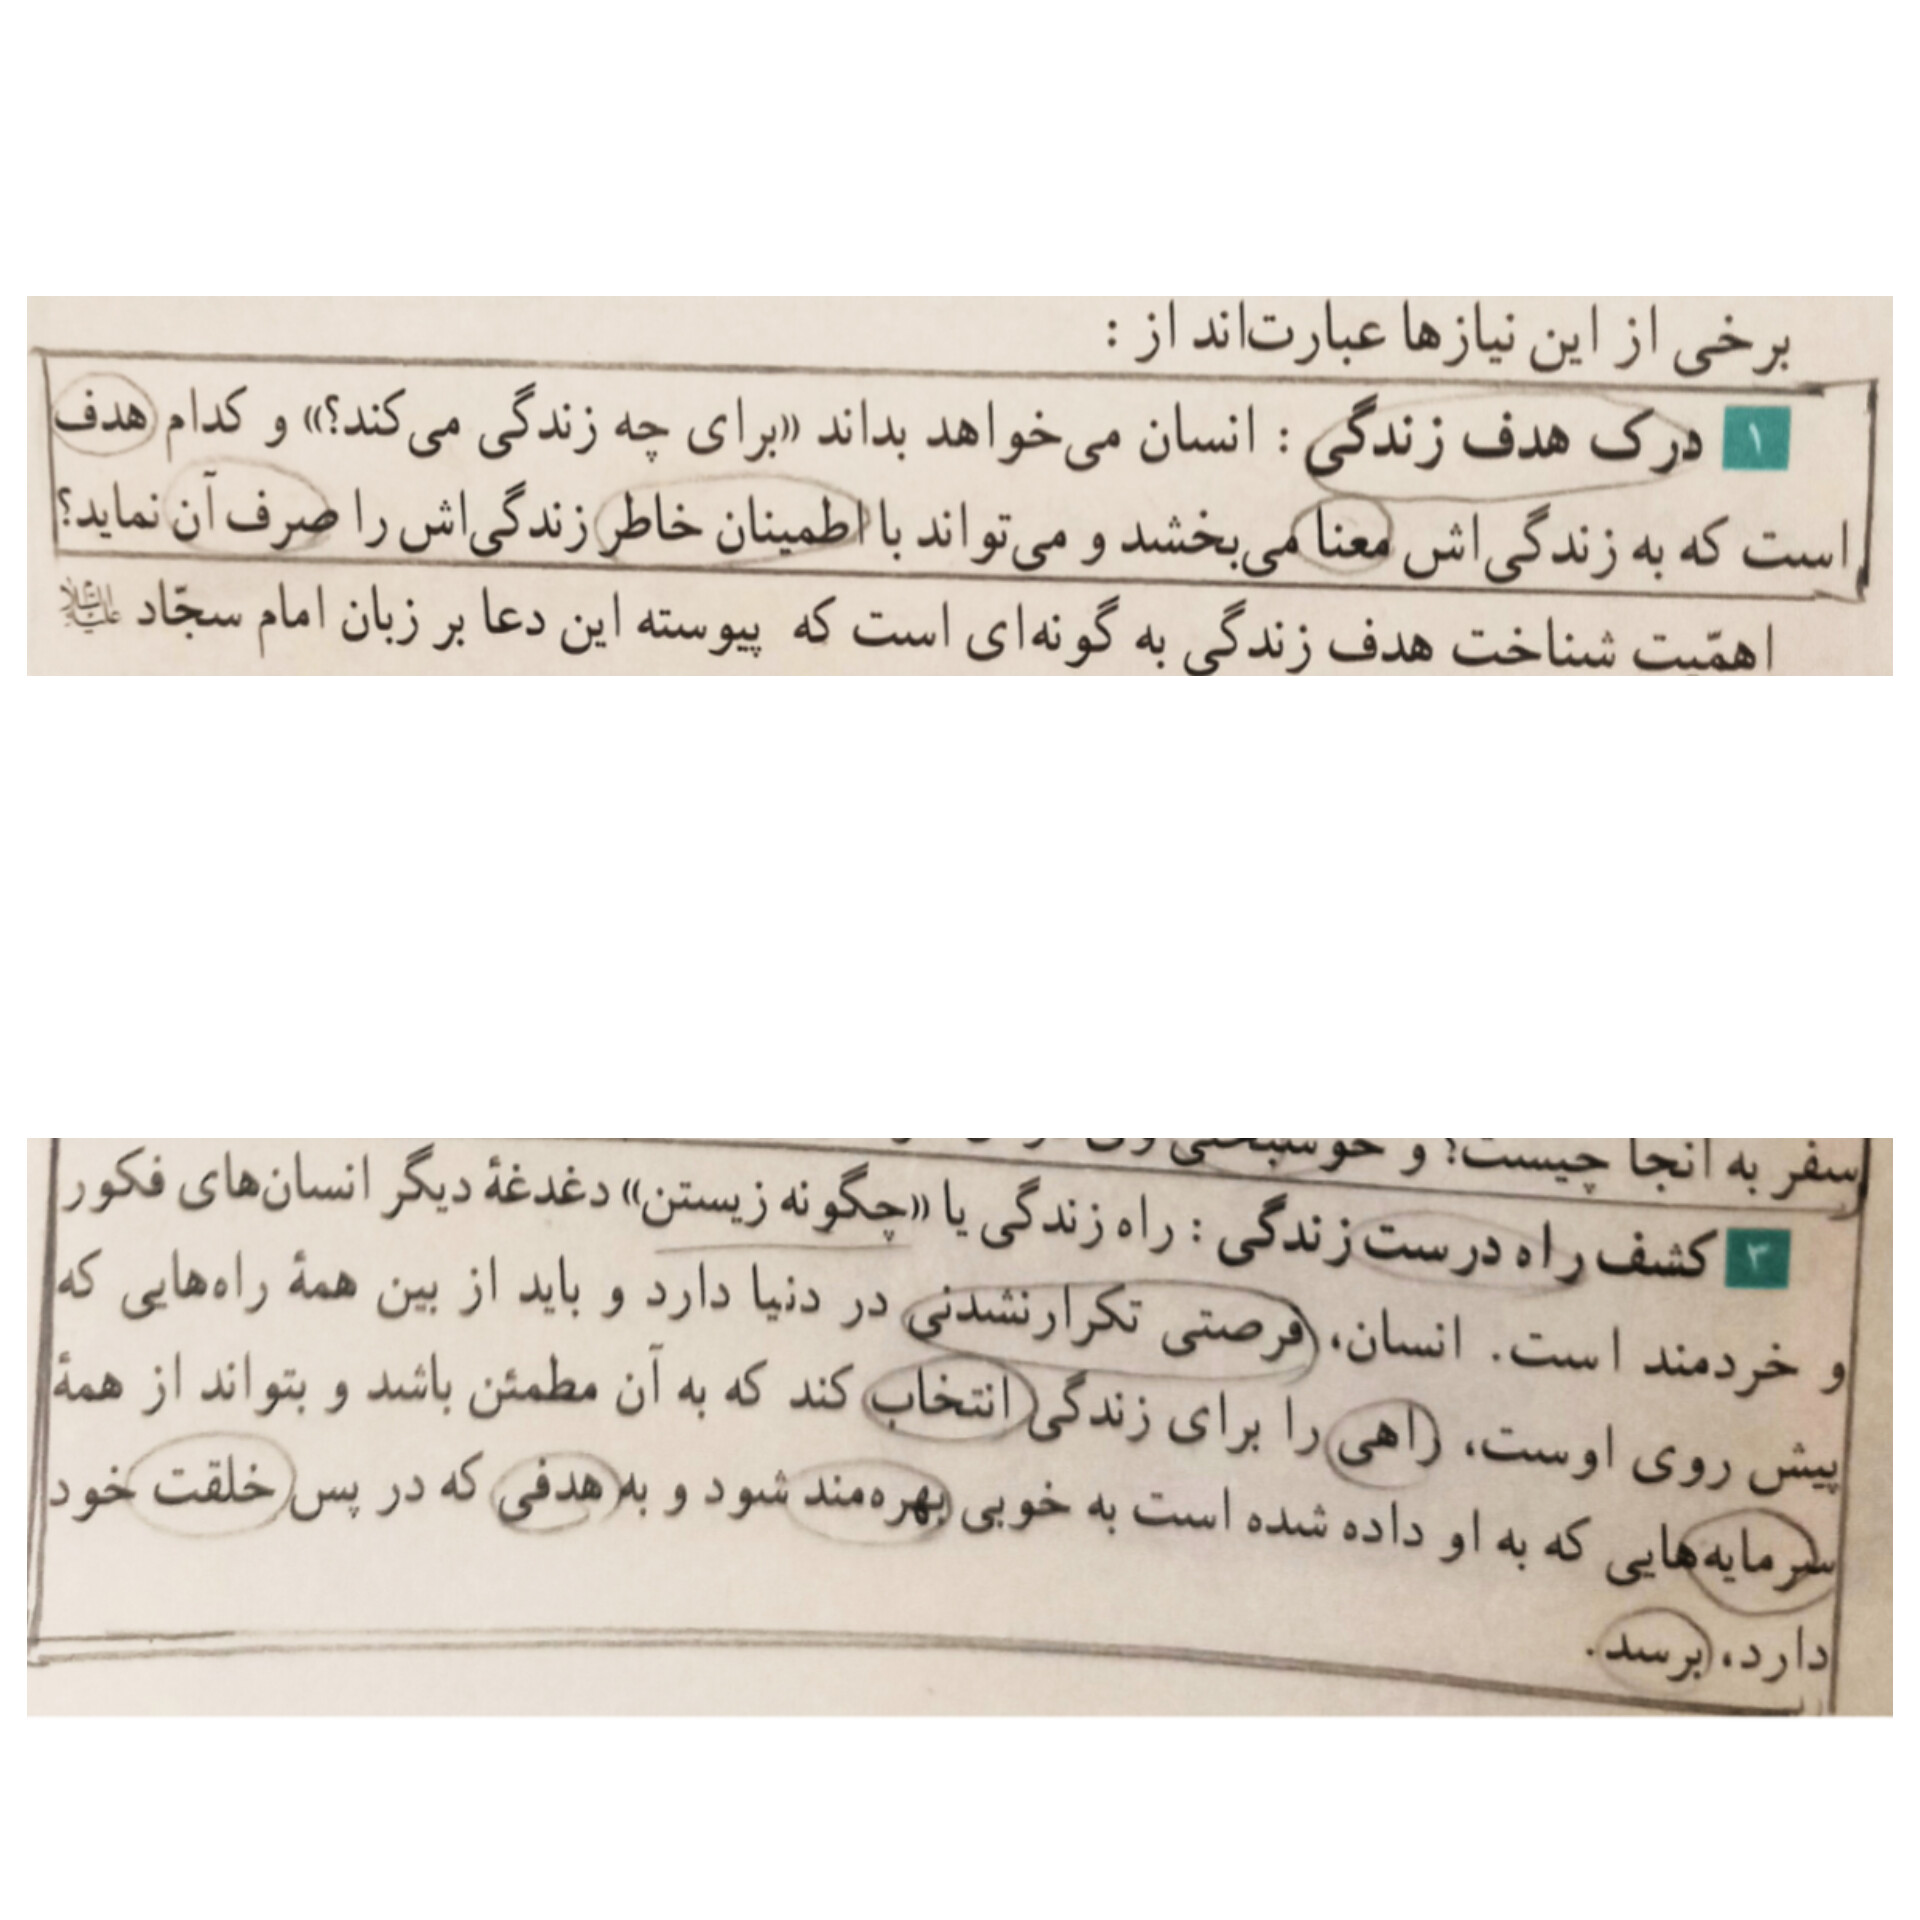 برخی از این نیازها عبارت‌اند از :
۱ درک هدف زندگی : انسان می‌خواهد بداند «برای چه زندگی می‌کند؟» و کدام هدف
است که به زندگی‌اش معنا می‌بخشد و می‌تواند با اطمینان خاطر زندگی‌اش را صرف آن نماید؟
اهمّیت شناخت هدف زندگی به گونه‌ای است که پیوسته این دعا بر زبان امام سجّاد علیه‌السلام
سفر به آنجا چیست؟ و خوشبختی وی در
۳ کشف راه درست زندگی : راه زندگی یا «چگونه زیستن» دغدغهٔ دیگر انسان‌های فکور
و خردمند است. انسان، فرصتی تکرارنشدنی در دنیا دارد و باید از بین همهٔ راه‌هایی که
پیش روی اوست، راهی را برای زندگی انتخاب کند که به آن مطمئن باشد و بتواند از همهٔ
سرمایه‌هایی که به او داده شده است به خوبی بهره‌مند شود و به هدفی که در پس خلقت خود
دارد، برسد.